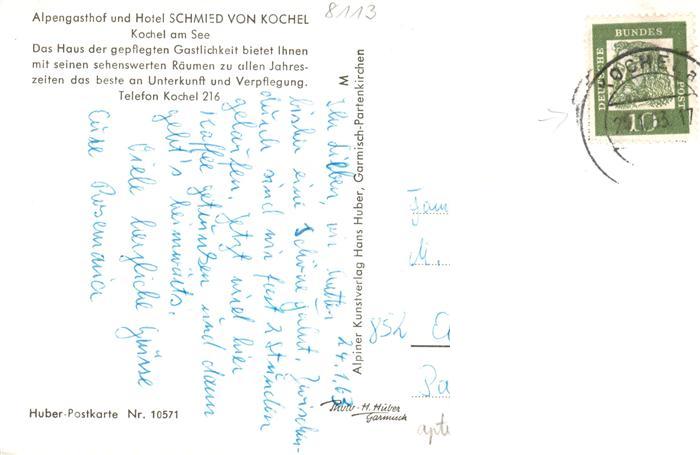 Alpengasthof und Hotel SCHMIED VON KOCHEL
Kochel am See
Das Haus der gepflegten Gastlichkeit bietet Ihnen
mit seinen sehenswerten Räumen zu allen Jahres-
zeiten das beste an Unterkunft und Verpflegung.
Telefon Kochel 216
8113
24.1.63
Ihr Lieben, wir hatten
bisher eine schöne Fahrt. Zwischen-
durch sind wir fast 2 Stunden
gelaufen. Jetzt wird hier
Kaffee getrunken und dann
geht's heimwärts.
Viele herzliche Grüsse
Eure Rosemarie
Huber-Postkarte Nr. 10571
M
Alpiner Kunstverlag Hans Huber, Garmisch-Partenkirchen
Photo-H. Huber
Garmisch
DEUTSCHE BUNDESPOST
10
KOCHEL
Fam
M.
852